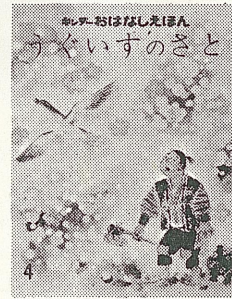 キンダーおはなしえほん
うぐいすのさと
4